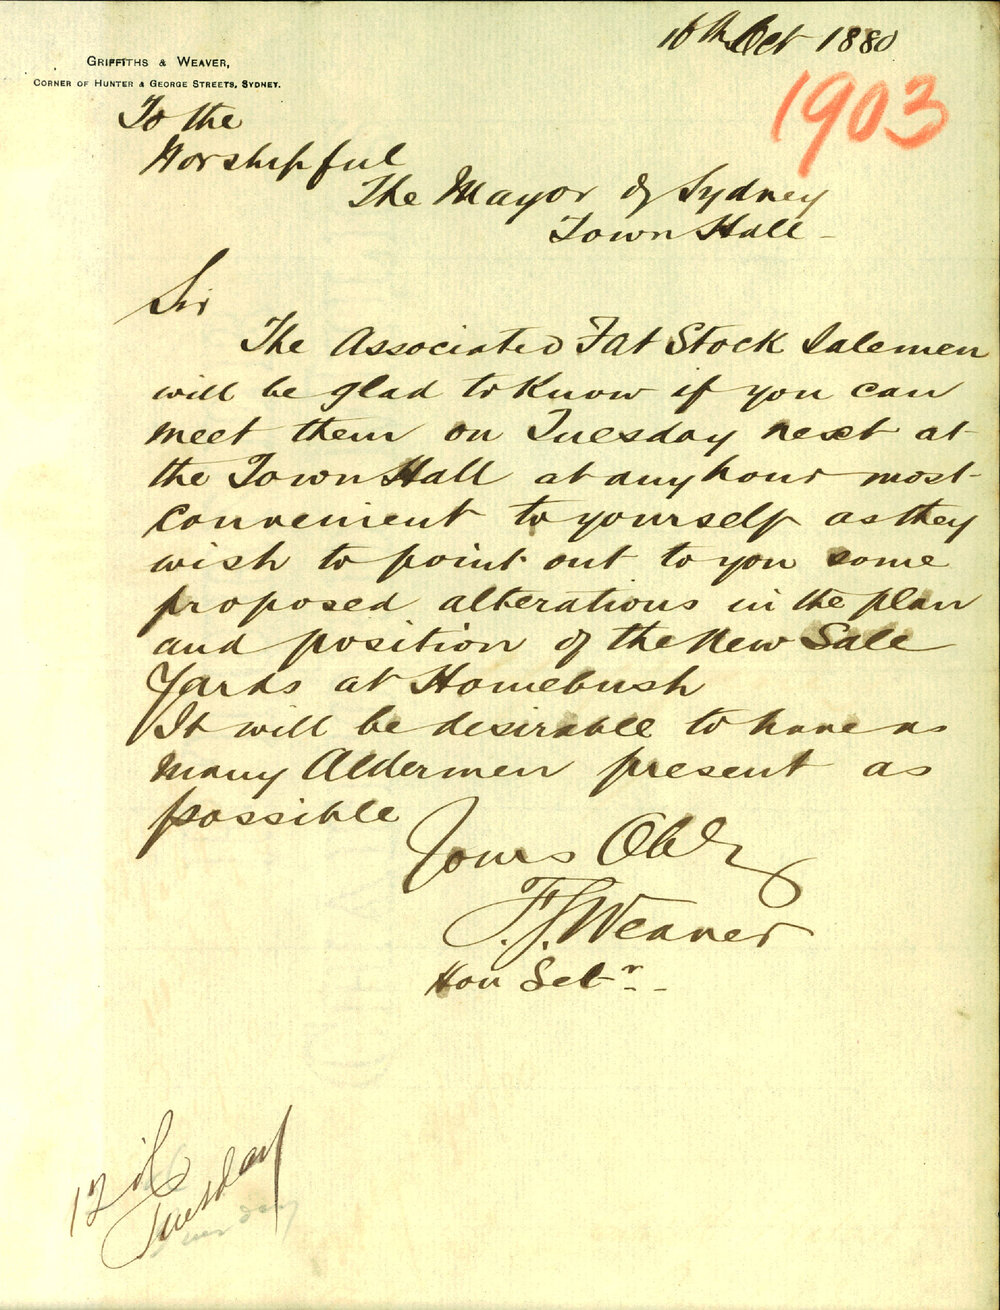 16th Oct 1880
GRIFFITHS & WEAVER,
CORNER OF HUNTER & GEORGE STREETS, SYDNEY.
1903
To the
Worshipful
The Mayor of Sydney
Town Hall
Sir
The Associated Fat Stock Salemen
will be glad to know if you can
meet them on Tuesday next at
the Town Hall at any hour most
convenient to yourself as they
wish to point out to you some
proposed alterations in the plan
and position of the New Sale
Yards at Homebush
It will be desirable to have as
many Aldermen present as
possible
Yours Obdly
F. J. Weaver
Hon Secry
12
Tuesday